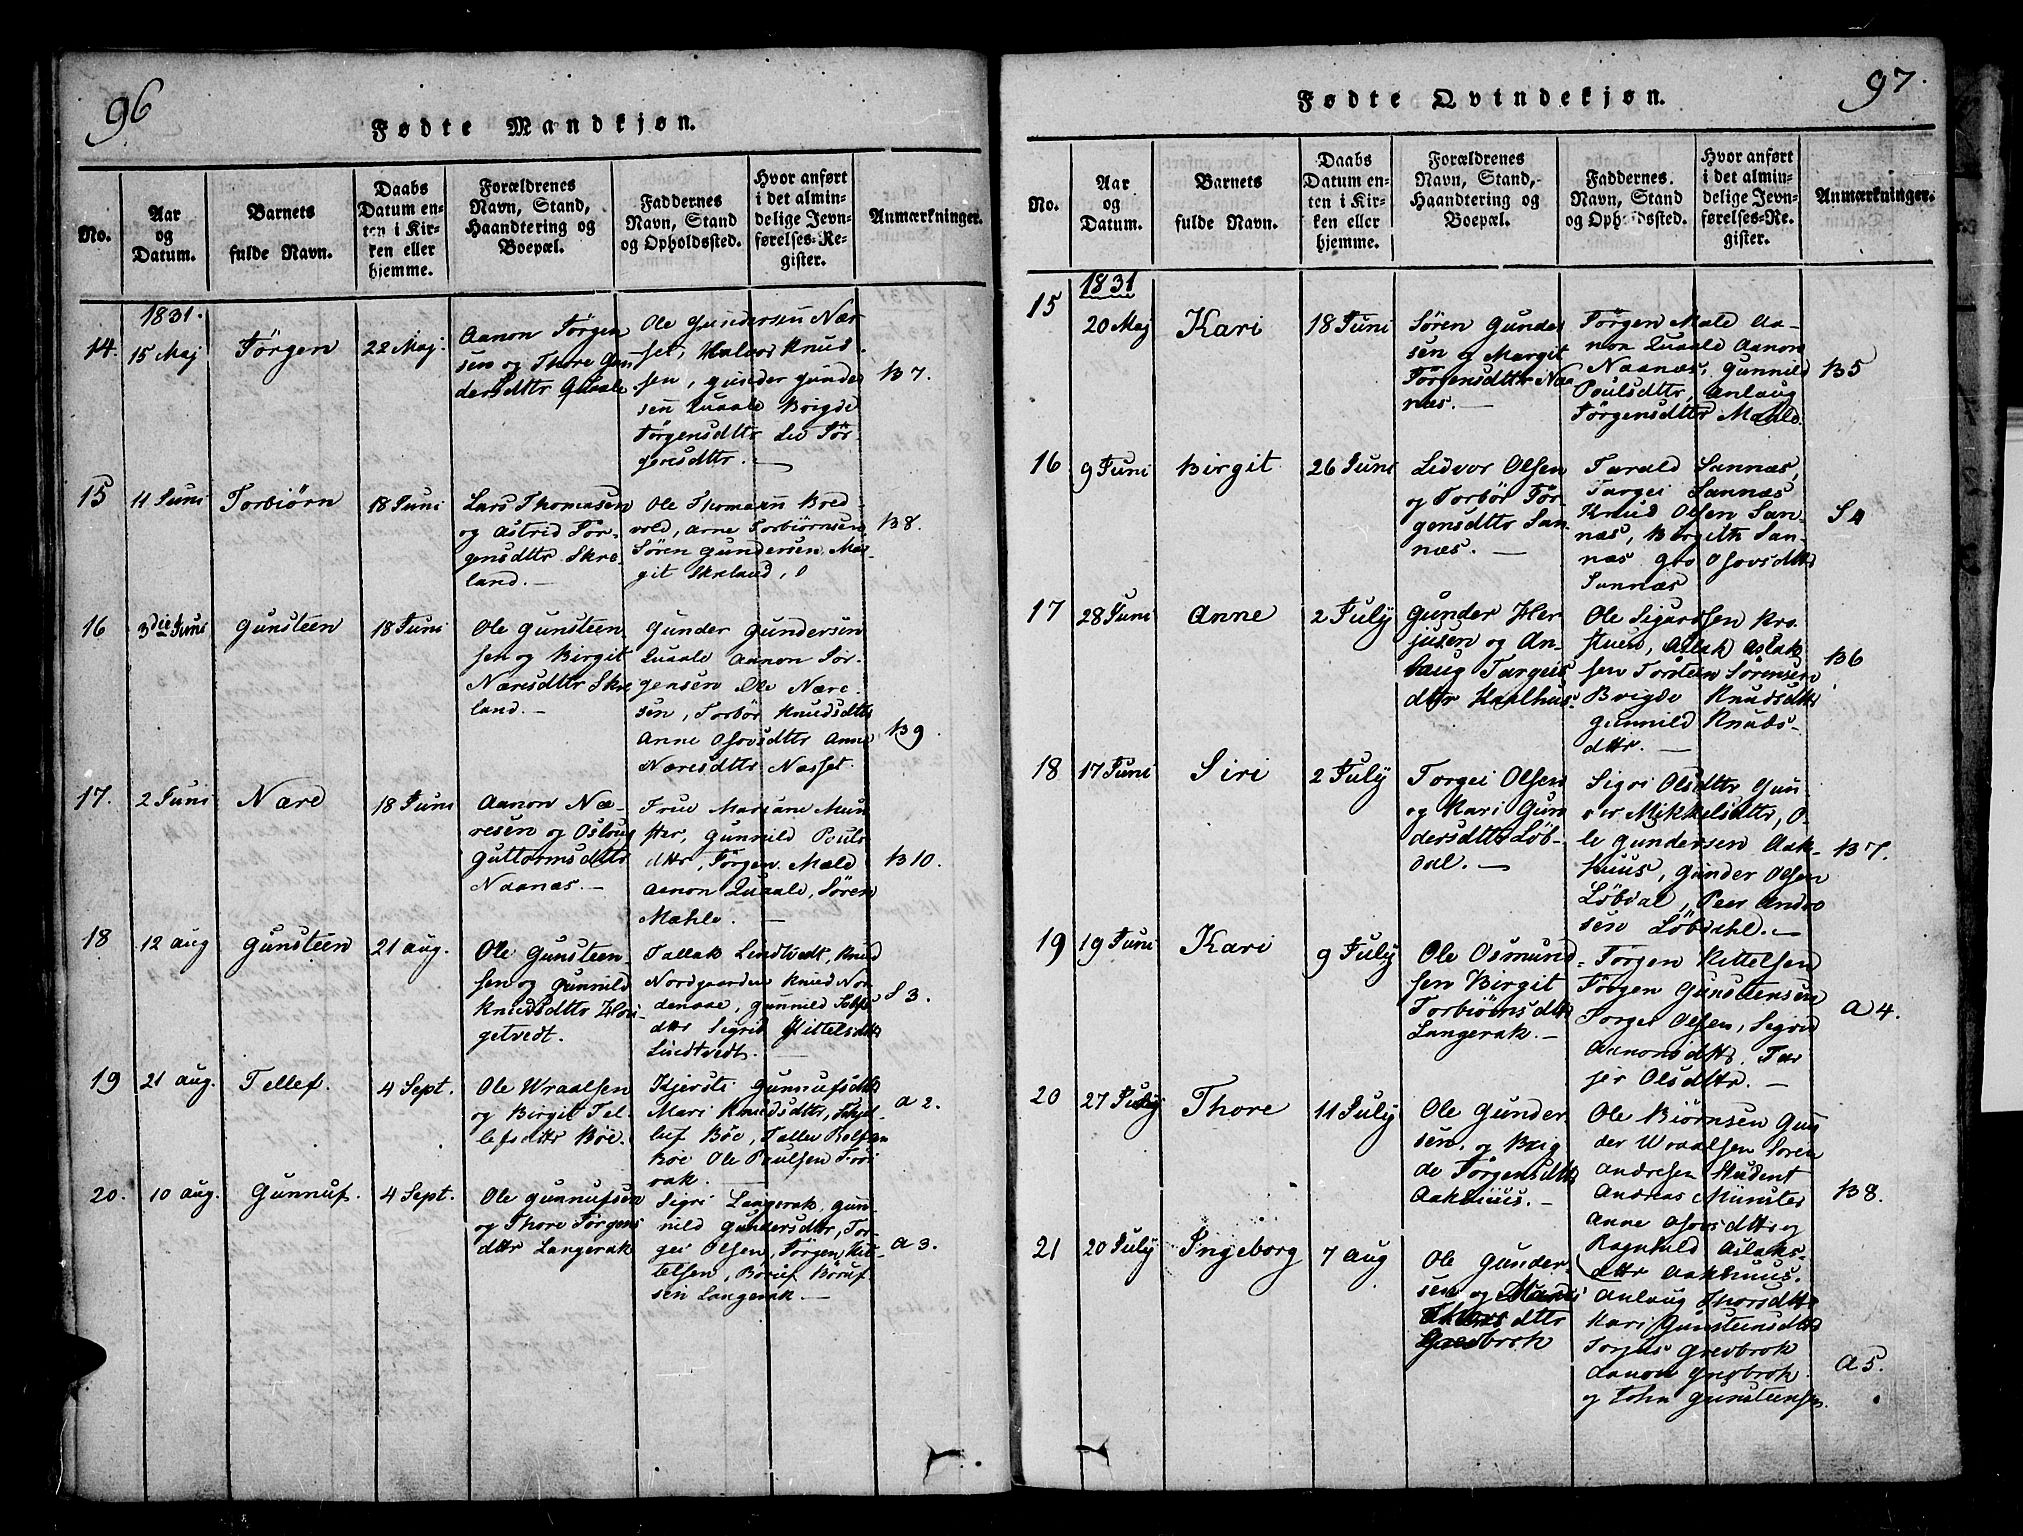 96
Fødte Mandkjøn.
No.
Aar
og
Datum.
Barnets
fulde Navn.
Daabs
Datum en-
ten i Kir-
ken eller
hjemme.
Forældrenes
Navn, Stand,
Haandtering og
Boepæl.
Faddernes
Navn, Stand
og Opholdssted.
Hvor anført
i det almin-
delige Jevn-
førelses-Re-
gister.
Anmærkninger.
1831.
14.
15 Maj
Jørgen
22 Maj.
Aanon Jørgen
sen og Thore Gun
dersdttr Quale
Ole Gundersen Næs
set, Halvor Knud
sen, Gunder Gunder
sen Quaale Brigde
Jørgensdttr Liv Jør-
gensdttr. —
B 7.
15
11 Juni
Torbiörn
18 Juni
Lars Thomesen
og Astrid Jör-
gensdttr Skre
land. —
Ole Thomesen Bred
vold, Arne Torbiörnsen
Sören Gundersen, Mar
git Skreland,
B 8.
16
3die Juni
Gunsteen
18 Juni
Ole Gunsteen
sen og Birgit
Næresdttr Skre
land. —
Gunder Gundersen
Quaale Aanon Jör
gensen Ole Nære-
sen, Torbör Knudsdttr
Anne Osovsdttr Anne
Næresdttr Næsset.
B 9.
17.
2 Juni
Nære
18 Juni
Aanon Næ-
resen og Oslaug
Guttormsdttr
Naanæs. —
Frue Mariane Mun
ster, Gunnild Pouls
dttr, Jørgen Mæle
Aanon Quaale, Sören
Mæhle. —
B 10.
18
12 aug
Gunsteen
21 aug.
Ole Gunsteen
sen og Gunnild
Knudsdttr Hei
getvedt.
Tallak Lindtvedt, Knud
Nordgaarden Knud Nor
denaae, Gunnild
dttr Sigrid Kittelsdttr
Lindtvedt. —
S 3.
19
21 aug.
Tellef.
4 Sept.
Ole Wraalsen
og Birgit Tel-
lefsdttr Böe.
Kjersti Gunnufsdttr
Mari Knudsdttr,
lief Böe,
Böe Ole Paulsen Frøi
rak. —
a 2.
20.
10 aug.
Gunnuf.
4 Sept.
Ole Gunnufsen
og Thore Jørgens
dttr Langerak
Sigri Langerak, Gun-
nild Gundersdttr, Tor-
gei Olsen, Jørgen Kit-
telsen, Böruf Böruf
sen Langerak. —
a 3.
97.
Fødte Qvindekjøn.
No.
Aar
og
Datum.
Barnets
fulde Navn.
Daabs
Datum en-
ten i Kir-
ken eller
hjemme.
Forældrenes
Navn, Stand,
Haandtering og
Boepæl.
Faddernes
Navn, Stand
og Opholdssted.
Hvor anført
i det almin-
delige Jevn-
førelses-Re-
gister.
Anmærkninger.
1831
15
20 Maj
Kari
18 Juni
Sören Gunder
sen og Margit
Jörgensdttr Naa
næs. —
Jørgen Mæle Aa-
non Quaale Aanon
Naanæs, Gunnild
Poulsdttr, Anlaug
Jørgensdttr Mæhle.
B 5
16
9 Juni
Birgit
26 Juni
Lidvor Olsen
og Torbör Jör
gensdttr San
næs. —
Tarald Sannæs,
Targei Sannæs
Knud Olsen San-
næs, Birgith San-
næs Gro Osovsdttr
Sannæs
S 4
17
28 Juni
Anne
2 July
Gunder Her
jusen og An
laug Targeis
dttr Haslhus.
Ole Sigurdsen Kro
stuen, Aslak Aslak
sen Torstein Sørensen
Brigde Knudsdttr
Gunnild Knuds-
dttr. —
B 6
18
17 Juni
Siri
2 July
Torgei Olsen
og Kari Gun
dersdttr Löb-
dal. —
Sigri Olsdttr Gun-
vor Mikkelsdttr, O-
le Gundersen Aak-
huus, Gunder Olsen
Löbdal, Peer Andre
sen Löbdahl. —
B 7.
19
19 Juni
Kari
9 July
Ole Osmund
sen Birgit
Torbiörnsdttr
Langerak. —
Jørgen Kittelsen
Jörgen Gunsteensen
Torgei Olsen, Sigrid
Aanonsdttr. Tar
jer Olsdttr. —
a 4.
20
27 July
Thore
11 July
Ole Gunder
sen, og Brig
de Jörgensdttr
Aakhuus. —
Ole Biørnsen Gun
der Wraalsen Soren
Andresen Student
Andreas Münster
Anne Osovsdttr og
Ragnhild Aslaks-
dttr Aakhuus.
B 8.
21
20 July
Ingeborg
7 aug
Ole Gunder-
sen og
dttr
Grevbrok
Anlaug Thorsdttr
Kari Gunsteinsdttr
Torjus Grevbrok
Aanon Grevbrok
og John Gunsteensen.
a 5.